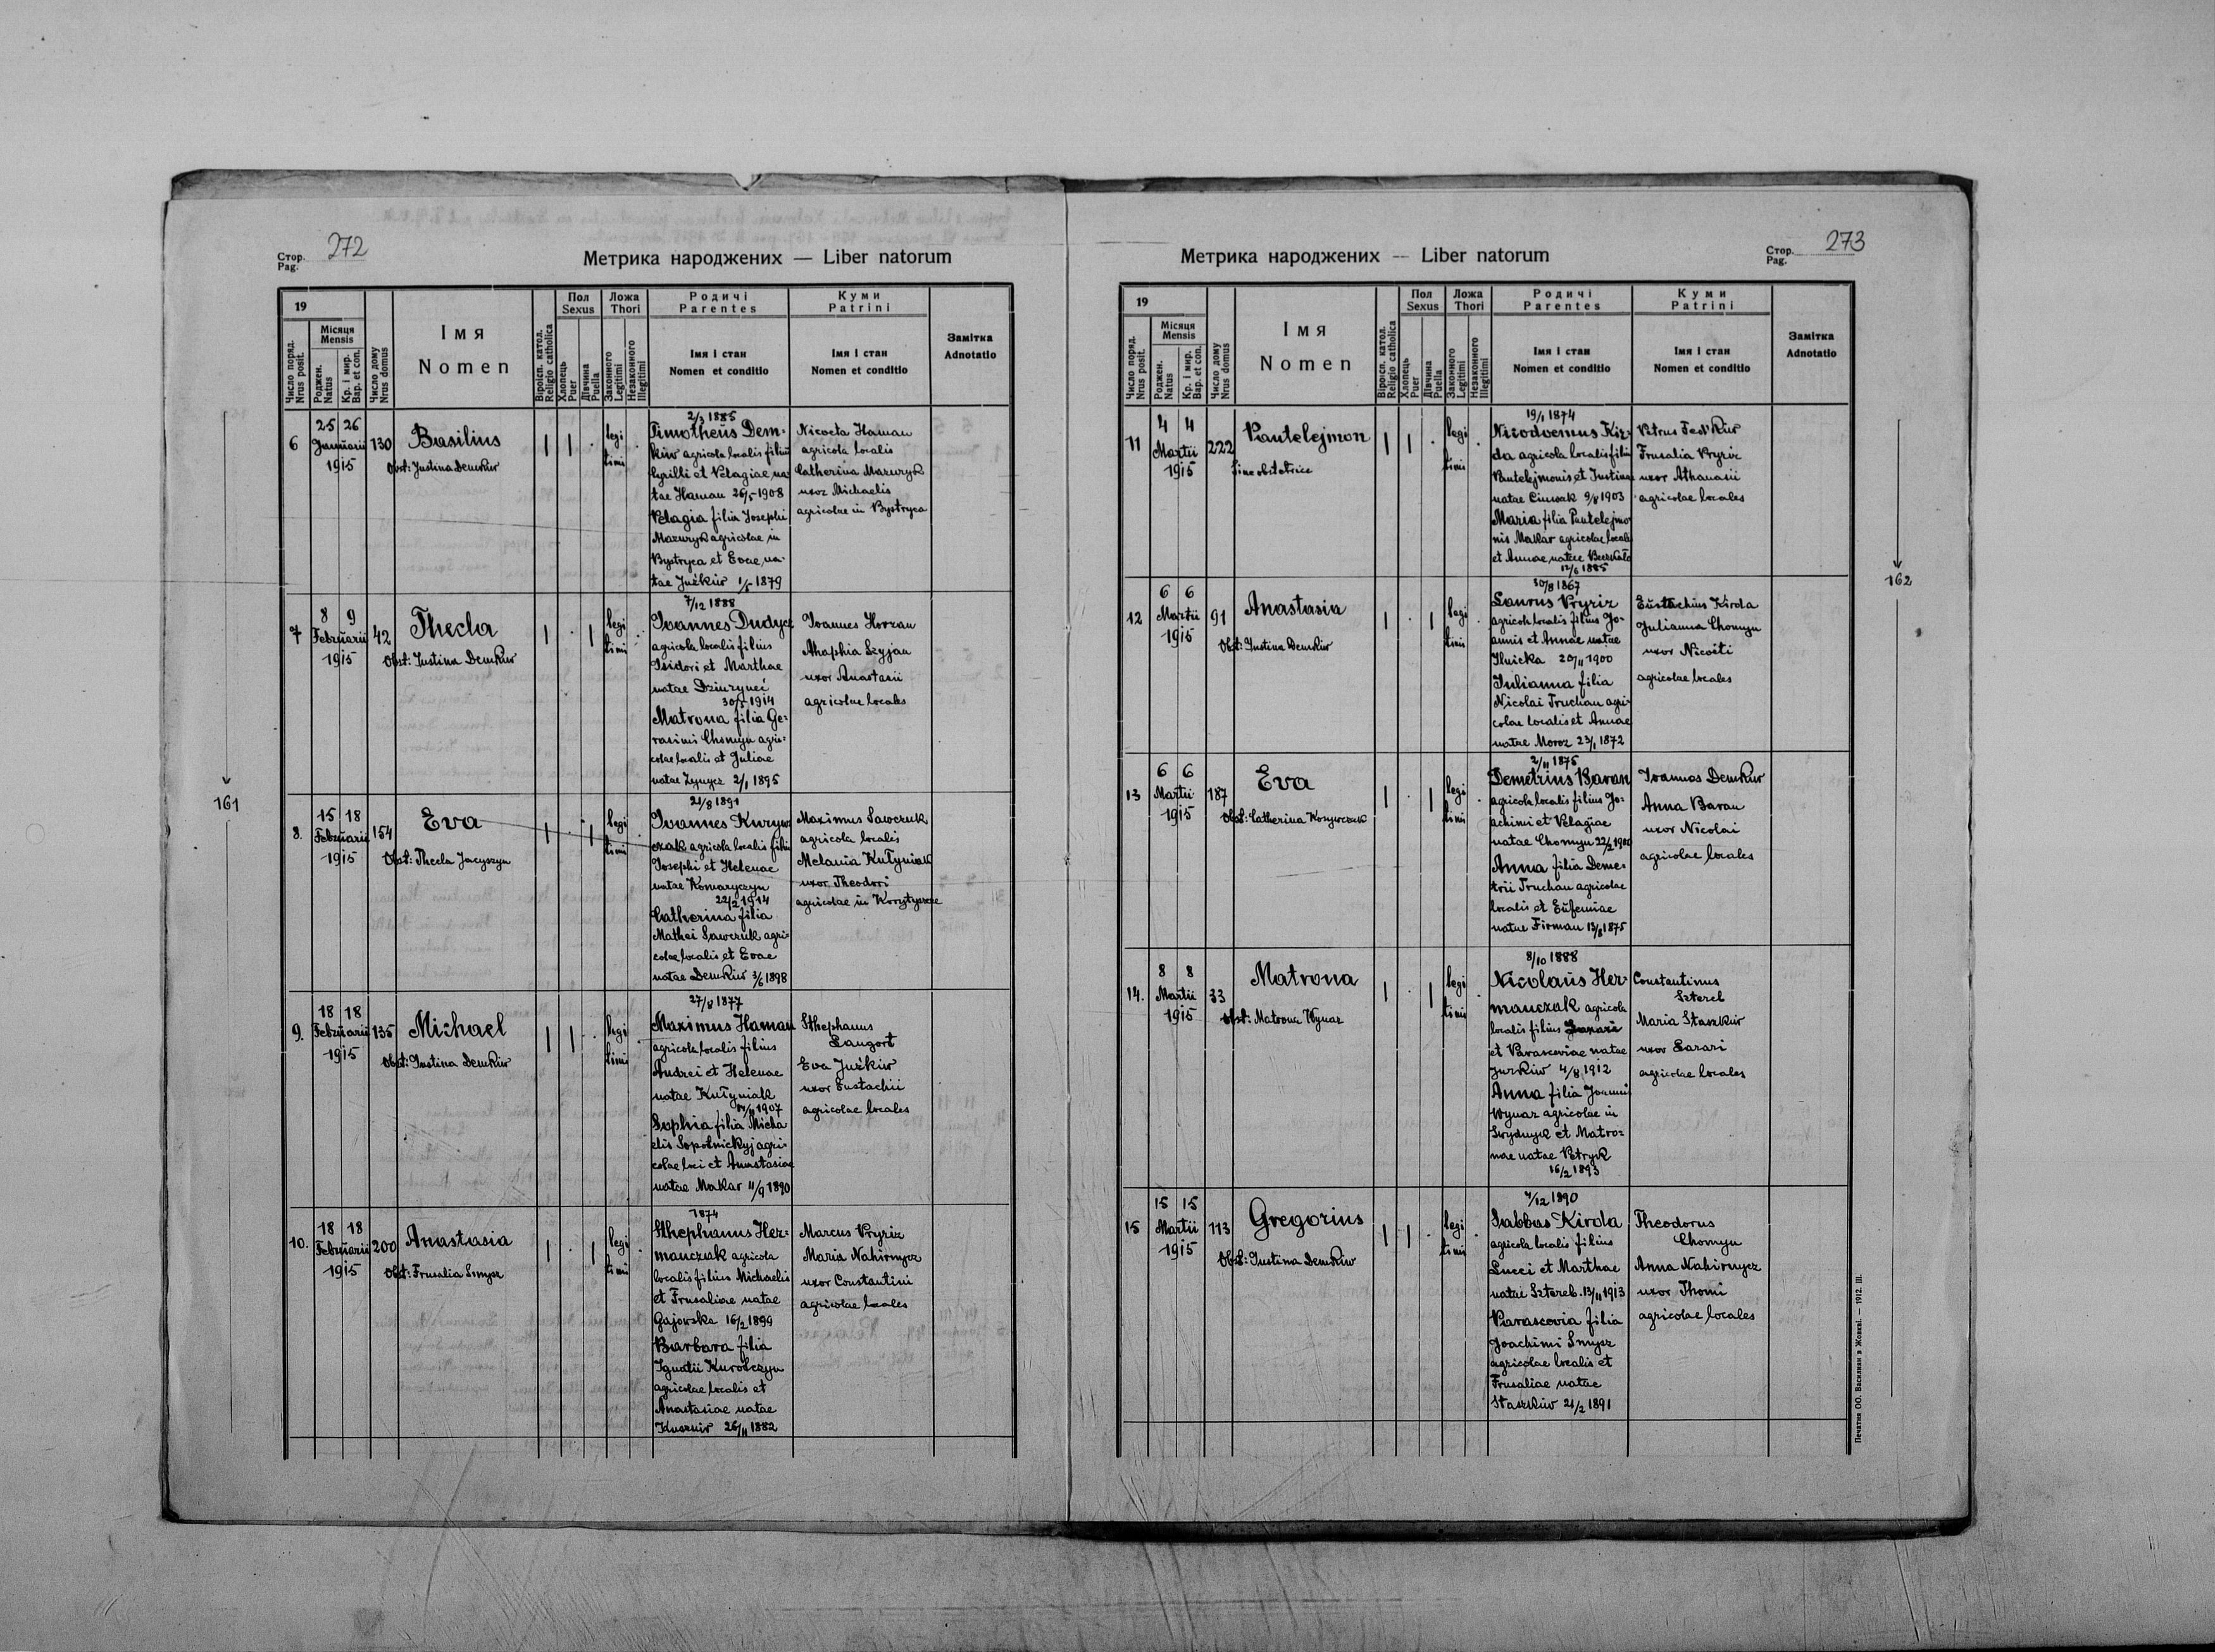 Стор.
Pag.
272
Метрика народжених — Liber natorum
19
Місяця
Mensis
Число поряд.
Nrus posit.
Роджен.
Natus
Кр. і мир.
Bap. et con.
Число дому
Nrus domus
Імя
Nomen
Віроісп. катол.
Religio catholica
Пол
Sexus
Хлопець
Puer
Дівчина
Puella
Ложа
Thori
Законного
Legitimi
Незаконного
Illegitimi
Родичі
Parentes
Імя і стан
Nomen et conditio
Куми
Patrini
Імя і стан
Nomen et conditio
Замітка
Adnotatio
161
6
25 26
Januarii
1915
130
Basilius
Obst: Justina Demkiw
legi
timi
2/3 1885
Timotheus Dem-
kiw agricola localis filius
Cyrilli et Pelagiae, na-
tae Haman 26/5 1908
Pelagia filia Josephi
Mazuryk agricolae in
Bystryca et Evae, na-
tae Juźkiw 1/5 1879
Niceta Haman
agricola localis
Catherina Mazuryk
uxor Michaelis
agricolae in Bystryca
7
8 9
Februarii
1915
42
Thecla
Obst: Justina Demkiw
legi
timi
7/12 1888
Ioannes Dudycz
agricola localis filius
Isidori et Marthae
natae
30/5 1914
Matrona filia Ge-
rasimi Chomyn agri-
colae localis et Juliae
natae Zynycz 2/1 1895
Ioannes Horzan
Ahaphia Szyjan
uxor Anastasii
agricolae locales
8.
15 18
Februarii
1915
154
Eva
Obst: Thecla Jacyszyn
legi
timi
21/8 1891
Ioannes Kuryw-
czak agricola localis filius
Josephi et Helenae
natae Komaryczyn
22/2 1914
Catherina filia
Mathei Sawczuk agri-
colae localis et Evae
natae Demkiw 3/6 1898
Maximus Sawczuk
agricola localis
Melania Kutyniak
uxor Theodori
agricolae in
9.
18 18
Februarii
1915
135
Michael
Obst: Justina Demkiw
legi
timi
27/8 1877
Maximus Haman
agricola localis filius
Andrei et Helenae
natae Kutyniak
1907
Sophia filia Micha
elis Sopotnickyj agri-
colae loci et Anastasiae
natae Makar 11/9 1890
Sthephanus
Langort
Eva Juźkiw
uxor Eustachii
agricolae locales
10.
18 18
Februarii
1915
200
Anastasia
Obst: Frusalia Smysz
legi
timi
1874
Sthephanus Her-
manczak agricola
localis filius Michaelis
et Frusaliae natae
Gajowska 16/2 1899
Barbara filia
Ignatii Kurobczyn
agricolae localis et
Anastasiae natae
Kusznir 26/11 1882
Marcus Pryriz
Maria Nahirnycz
uxor Constantini
agricolae locales
Метрика народжених — Liber natorum
Стор.
Pag.
273
19
Місяця
Mensis
Число поряд.
Nrus posit.
Роджен.
Natus
Кр. і мир.
Bap. et con.
Число дому
Nrus domus
Імя
Nomen
Віроісп. катол.
Religio catholica
Пол
Sexus
Хлопець
Puer
Дівчина
Puella
Ложа
Thori
Законного
Legitimi
Незаконного
Illegitimi
Родичі
Parentes
Імя і стан
Nomen et conditio
Куми
Patrini
Імя і стан
Nomen et conditio
Замітка
Adnotatio
162
11
4 4
Martii
1915
222
Pantelejmon
sine obstetrice
legi
timi
19/1 1874
Nicodoemus Kir-
da agricola localis filius
Pantelejmonis et Justinae
natae Ciuwak 9/8 1903
Maria filia Pantelejmo
nis Makar agricolae localis
et Annae natae
12/6 1885
Petrus Fedkiw
Frusalia Pryriz
uxor Athanasii
agricolae locales
12
6 6
Martii
1915
91
Anastasia
Obst: Justina Demkiw
legi
timi
30/8 1867
Laurus Pryriz
agricola localis filius Jo-
annis et Annae natae
Ilnicka 20/11 1900
Julianna filia
Nicolai Truchan agri-
colae localis et Annae
natae Moroz 23/1 1872
Eustachius Kirda
Julianna Chomyn
uxor Niceti
agricolae locales
13
6 6
Martii
1915
187
Eva
Obst: Catherina
legi
timi
2/11 1875
Demetrius Baran
agricola localis filius Jo-
achimi et Pelagiae
natae Chomyn 22/2 1900
Anna filia Deme-
trii Truchan agricolae
localis et Eufemiae
natae Firman 13/8 1875
Ioannes Demkiw
Anna Baran
uxor Nicolai
agricolae locales
14.
8 8
Martii
1915
33
Matrona
Obst: Matrona Wynar
legi
timi
8/10 1888
Nicolaus Her-
manczak agricola
localis filius Lazari
et Parasceviae natae
Jurkiw 4/8 1912
Anna filia Joannis
Wynar agricolae in
Swydnyk et Matro-
nae natae Petryk
16/2 1893
Constantinus
Sztereb
Maria Staszkiw
uxor Lazari
agricolae locales
15
15 15
Martii
1915
113
Gregorius
Obst: Justina Demkiw
legi
timi
4/12 1890
Sabbas Kirda
agricola localis filius
Lucci et Marthae
natae Sztereb. 13/11 1913
Parascevia filia
Joachimi Smysz
agricolae localis et
Frusaliae natae
Staszkiw 21/2 1891
Theodorus
Chomyn
Anna Nahirnycz
uxor Thomi
agricolae locales
Печатня ОО. Василіян в Жовкві. — 1912. III.